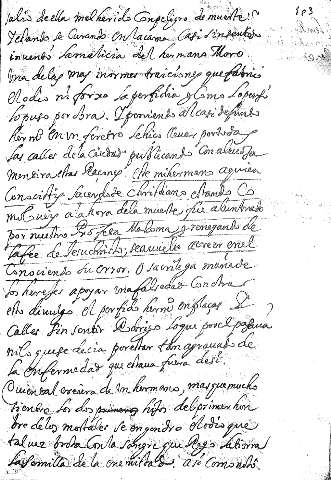 103
salio de ella mal herido con peligro de muerte
Y estando se curando en la cama casi sin sentido
invento la malicia del hermano Moro
una de las mas inormes traiciones que fabrico
el odio ni forxo la perfidia y como lo penso
lo puso por obra. Y poniendo al casi defunto
herm.o en un feretro se hizo llevar por todas
las calles de la ciudad publicando con a
mentira estas Este mi hermano a quien
conocistis siendo de christiano estando co
mo veis a la hora de la muerte, fue alumbrado
por nuestro Mahoma, y renegando de
la fee de Jesuchristo, se a vuelto a creer en el
conociendo su error. O sacrilega maña de
los hereges apoyar una falsedad con otra
esto divulgo el perfido herm.o en plaças y
calles sin sentir Rodrigo lo que por el pasava
ni lo que se decia por estar tan agravado de
la enfermedad que estava fuera de si.
Quien tal creiera de un hermano, mas que mucho
siendo los dos hijos del primer hom
bre de los mortales se engendro el odio que
tal vez brota con la sangre que
la semilla de la enemistad, asi como